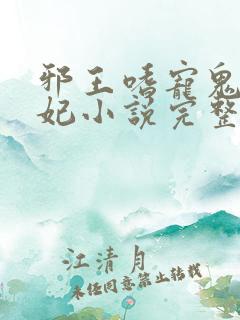 邪王嗜寵鬼
妃小说完整
江清月
未经同意禁止转载